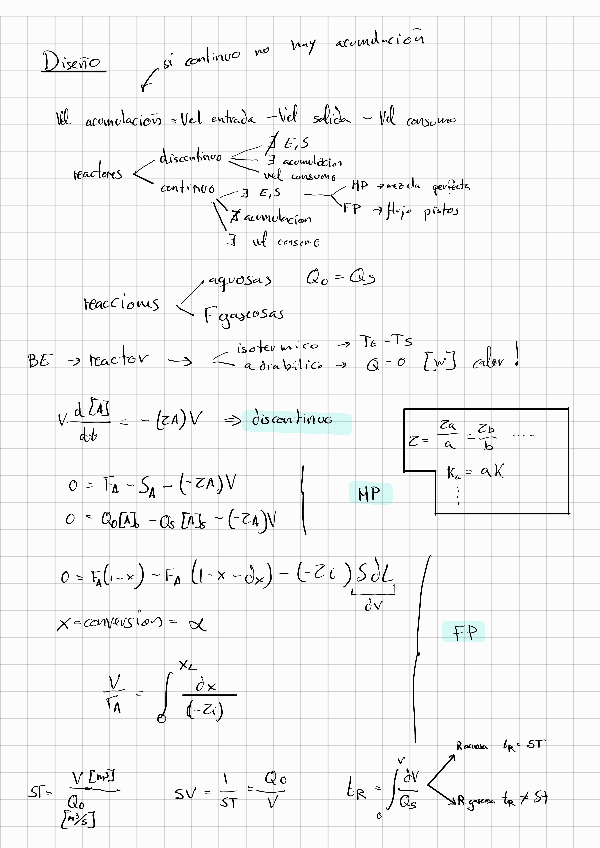 Diseño
si continuo no hay acumulación
Vel acumulación = Vel entrada - Vel salida - Vel consumo
reactores
discontinuo
∄ E,S
∃ acumulación
vel consumo
continuo
∃ E,S
MP → mezcla perfecta
FP → flujo pistos
∄ acumulacion
∃ vel consumo
reacciones
aquosas Q0 = Qs
gaseosas
BE → reactor →
isotermico → TE - TS
adiabático → Q - 0 [W] calor!
V d[A]/dt = -(rA)V ⇒ discontinuo
r = ra/a = rb/b ....
Ka = aK
⋮
0 = FA - SA - (-rA)V
0 = Q0[A]0 - Qs[A]s - (-rA)V
MP
0 = FA(1-x) - FA(1-x-dx) - (-ri) SdL
dV
x = conversion = α
FP
V/FA = ∫0^xL dx/(-ri)
ST = V [m³]/Q0 [m³/s]
SV = 1/ST = Q0/V
tR = ∫0^V dV/Qs
R acuosa tR = ST
R gaseosa tR ≠ St